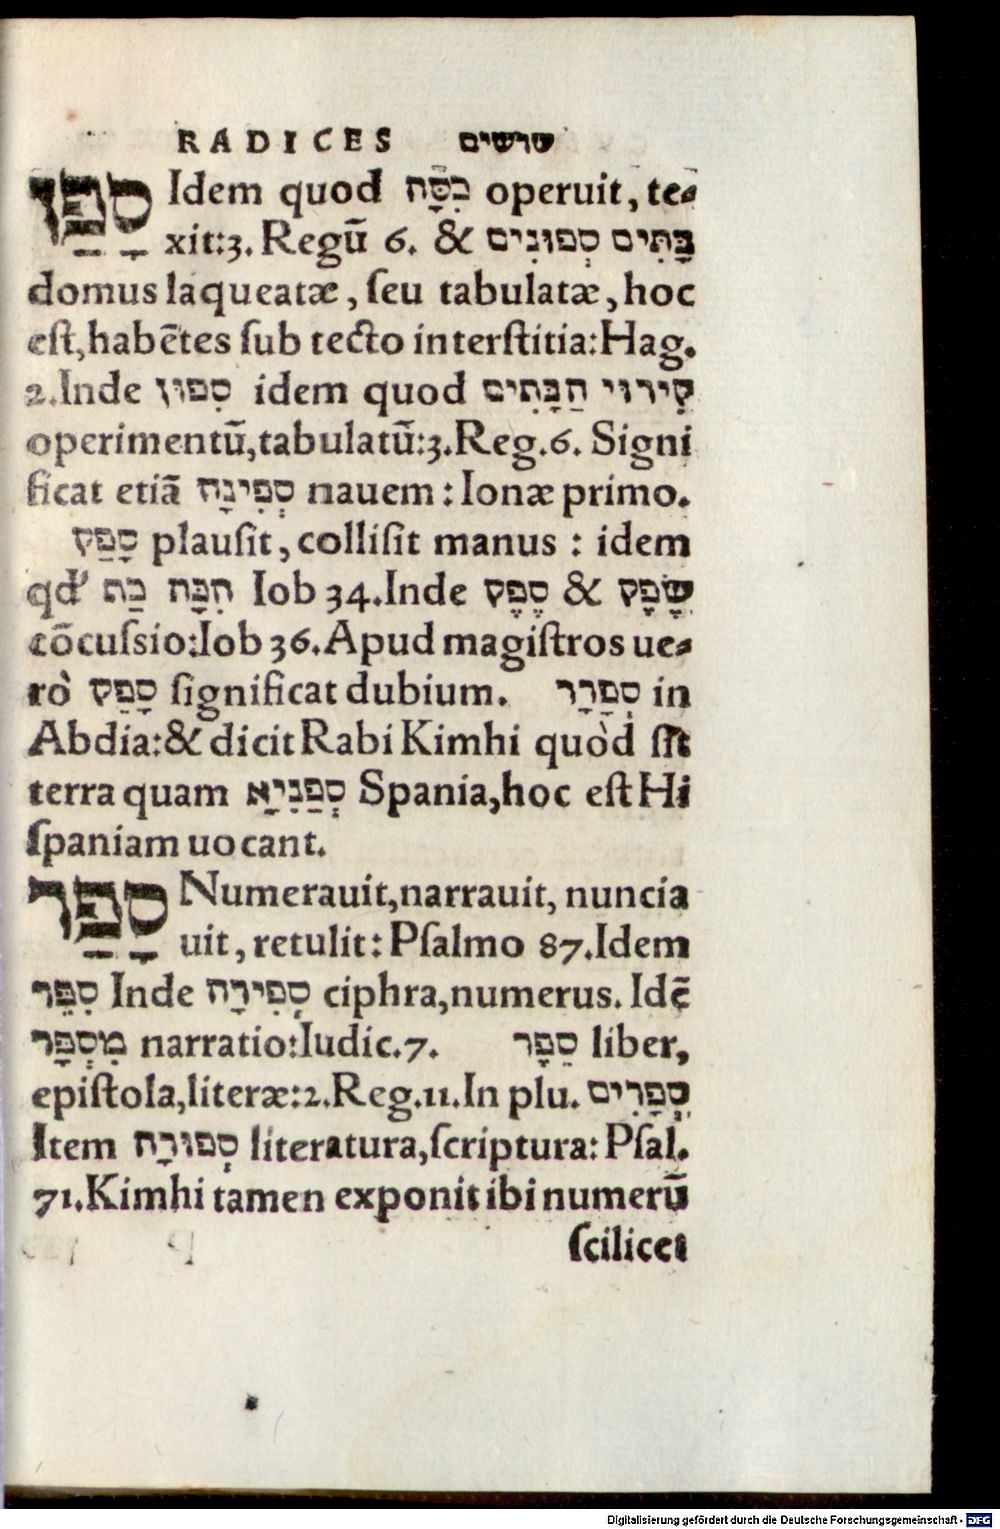 RADICES שרשים
סָפַן Idem quod כִּסָּה operuit, te-
xit: 3. Regū 6. & בָּתִּים סְפוּנִים
domus laqueatæ, seu tabulatæ, hoc
est, habētes sub tecto interstitia: Hag.
2. Inde סִפּוּן idem quod קִירוּי הַבָּתִּים
operimentū, tabulatū: 3. Reg. 6. Signi
ficat etiā סְפִינָה nauem: Ionæ primo.
סָפַק plausit, collisit manus: idem
qd' הִכָּה כַף Iob 34. Inde סֶפֶק & שֶׂפֶק
cōcussio: Iob 36. Apud magistros ue-
rò סָפֵק significat dubium. סְפָרַד in
Abdia: & dicit Rabi Kimhi quòd sit
terra quam סְפַנִיָא Spania, hoc est Hi
spaniam uocant.
סָפַר Numerauit, narrauit, nuncia
uit, retulit: Psalmo 87. Idem
סִפֵּר Inde סְפִירָה ciphra, numerus. Idē
מִסְפָּר narratio: Iudic. 7. סֵפֶר liber,
epistola, literæ: 2. Reg. 11. In plu. סְפָרִים
Item סְפוֹרָה literatura, scriptura: Psal.
71. Kimhi tamen exponit ibi numerū
scilicet
Digitalisierung gefördert durch die Deutsche Forschungsgemeinschaft - DFG